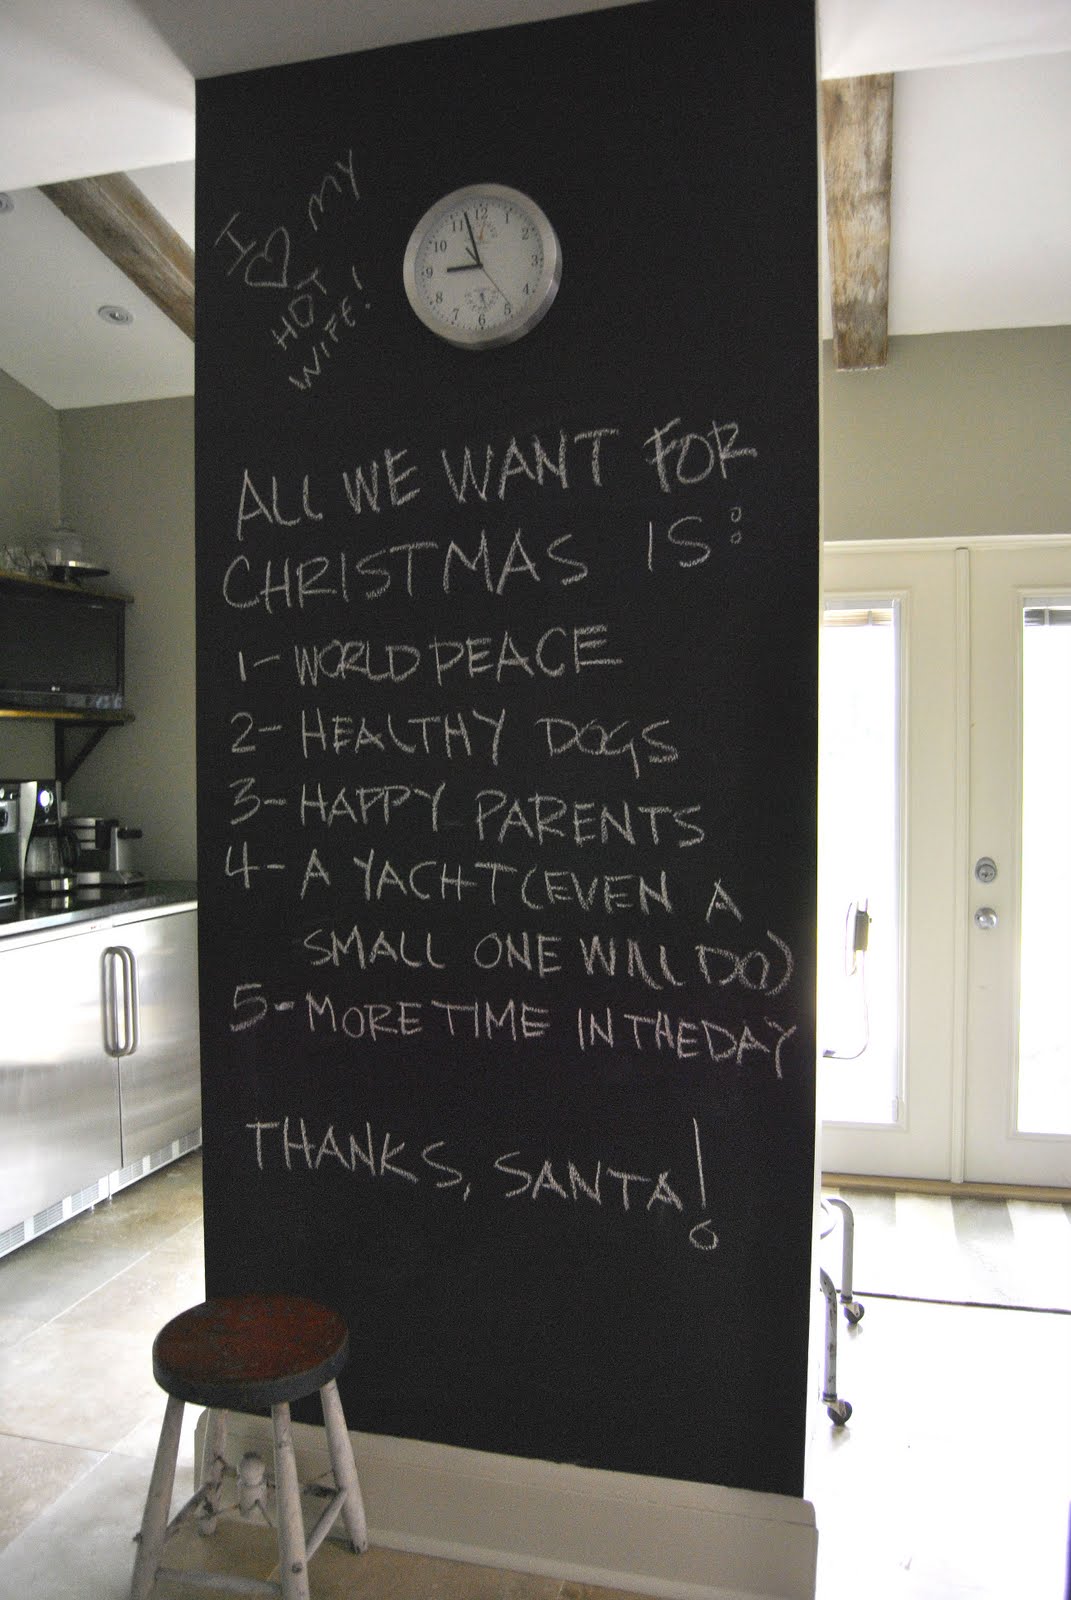 I ♡ MY
HOT
WIFE!
12
1
2
3
4
5
6
7
8
9
10
11
ALL WE WANT FOR
CHRISTMAS IS:
1- WORLD PEACE
2- HEALTHY DOGS
3- HAPPY PARENTS
4- A YACHT (EVEN A
SMALL ONE WILL DO)
5- MORE TIME IN THE DAY
THANKS, SANTA!